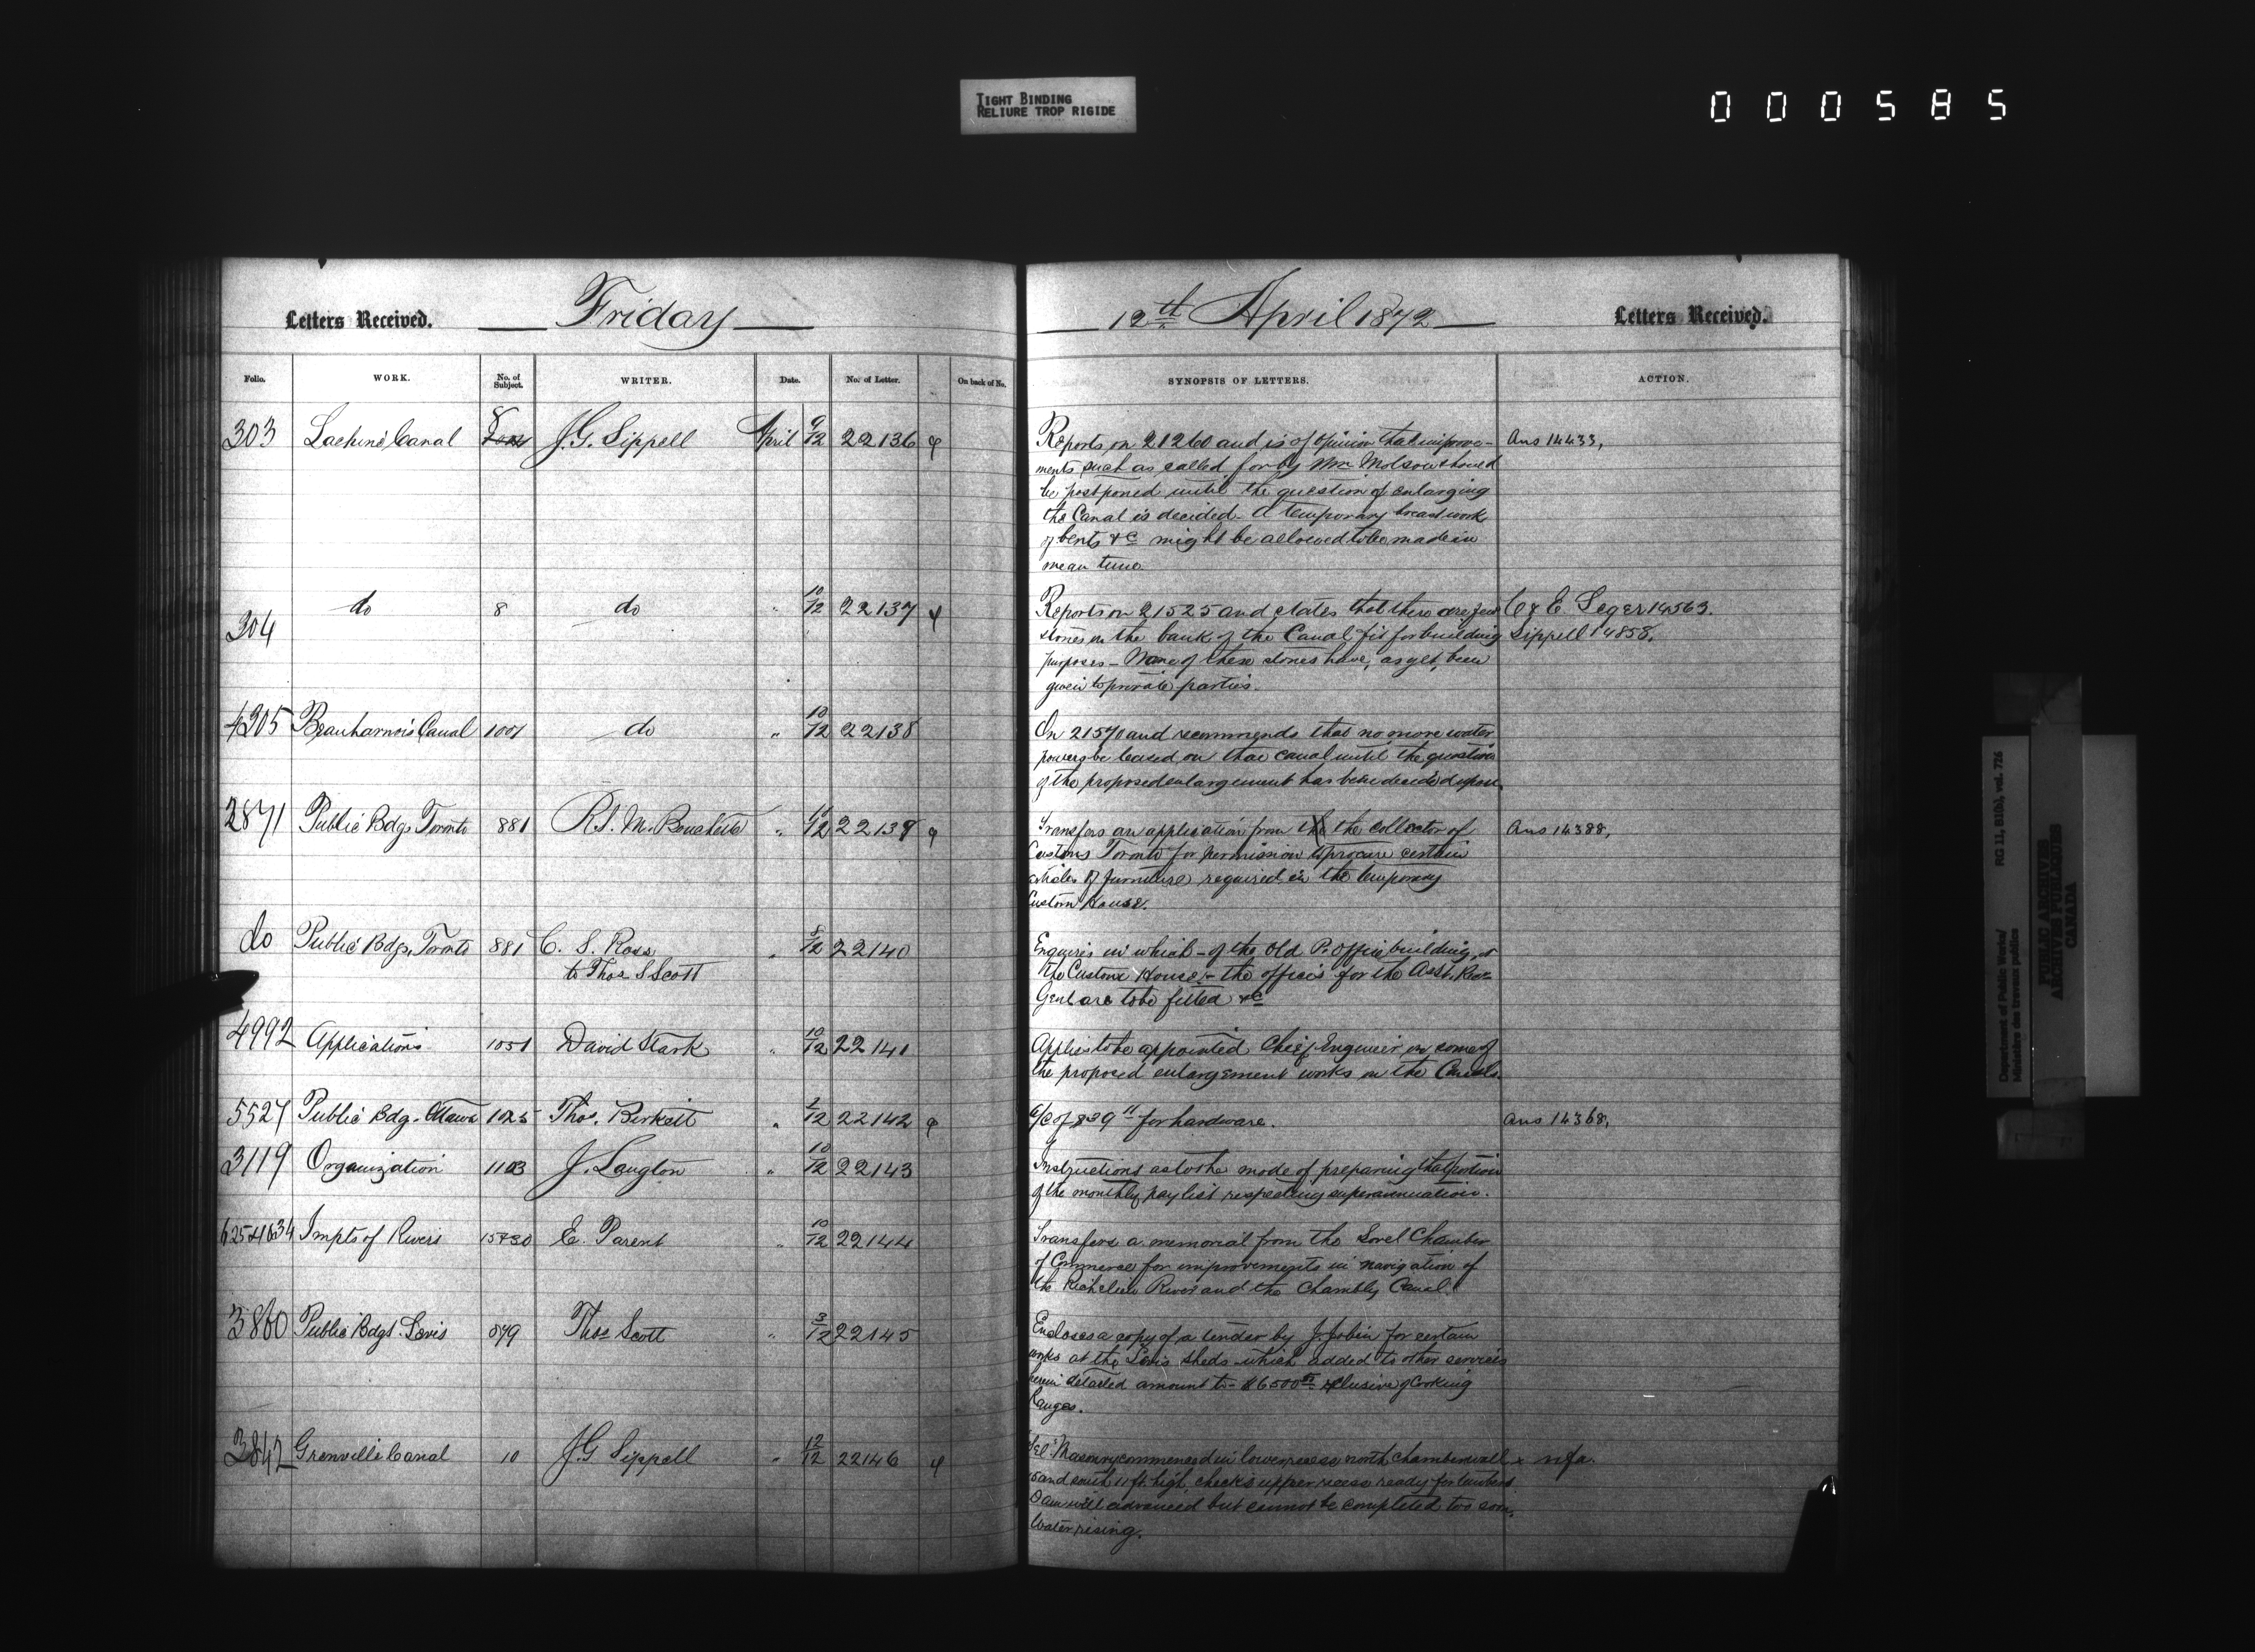 TIGHT BINDING
RELIURE TROP RIGIDE
000585
Letters Received. Friday
12th April 1872 Letters Received.
Folio. WORK. No. of Subject. WRITER. Date. No. of Letter. On back of No. SYNOPSIS OF LETTERS. ACTION.
303 Lachine Canal 8 J.G. Sippell April 9/12 22136 Reports on 21260 and is of opinion that improve- Ans 14433,
ments such as called for by Mr Molson should
be postponed until the question of enlarging
the Canal is decided - A temporary breastwork
of bents &c might be allowed to be made in
mean time.
304 do 8 do " 10/12 22137 Reports on 21525 and states that there are few C & E. Leger 14563.
stones on the bank of the Canal fit for building Sippell 14858.
purposes - None of these stones have, as yet, been
given to private parties.
4305 Beauharnois Canal 1001 do " 10/12 22138 On 21570 and recommends that no more water
powers be leased on that canal until the question
of the proposed enlargement has been decided upon.
2871 Public Bdgs Toronto 881 R.S.M. Bouchette " 11/12 22139 Transfers an application from the the collector of Ans 14388,
Customs Toronto for permission to procure certain
articles of furniture required in the temporary
Custom House.
do Public Bdgs, Toronto 881 C. S. Ross " 8/12 22140 Enquires in which - of the Old P. Office building, or
to Thos S Scott the Custom House, - the offices for the Asst. Rec-
Genl are to be fitted &c
4992 Applications 1051 David Stark " 10/12 22141 Applies to be appointed Chief Engineer on some of
the proposed enlargement works on the Canals.
5527 Public Bdg. Ottawa 1025 Thos. Birkett " 2/12 22142 A/c of $39 11 for hardware. Ans 14368,
3119 Organization 1103 J. Langton " 10/12 22143 Instructions as to the mode of preparing that portion
of the monthly pay list respecting superannuation.
Impts of Rivers E. Parent " 10/12 22144 Transfers a memorial from the Sorel Chamber
of Commerce for improvements in navigation of
the Richelieu River and the Chambly Canal.
3860 Public Bdgs. Levis 879 Thos Scott " 3/12 22145 Encloses a copy of a tender by J. Jobin for certain
works at the Levis sheds - which added to other services
herein detailed amount to - $6500 exclusive of Cooking
Ranges.
3842 Grenville Canal 10 J.G Sippell " 12/12 22146 Tel: Masonry commenced in lower recess north, chamber wall x nfa.
and south 11 ft. high, checks upper recess ready for timbers.
Dam well advanced but cannot be completed too soon,
Water rising.
Department of Public Works/
Ministère des travaux publics
RG 11, B1(b), vol. 726
PUBLIC ARCHIVES
ARCHIVES PUBLIQUES
CANADA